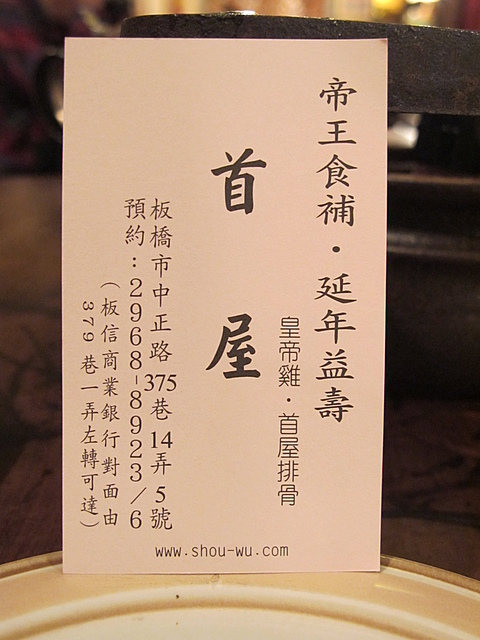 帝王食補・延年益壽
皇帝雞・首屋排骨
首屋
板橋市中正路375巷14弄5號
預約：2968-8923/6
（板信商業銀行對面由
379巷一弄左轉可達）
www.shou-wu.com